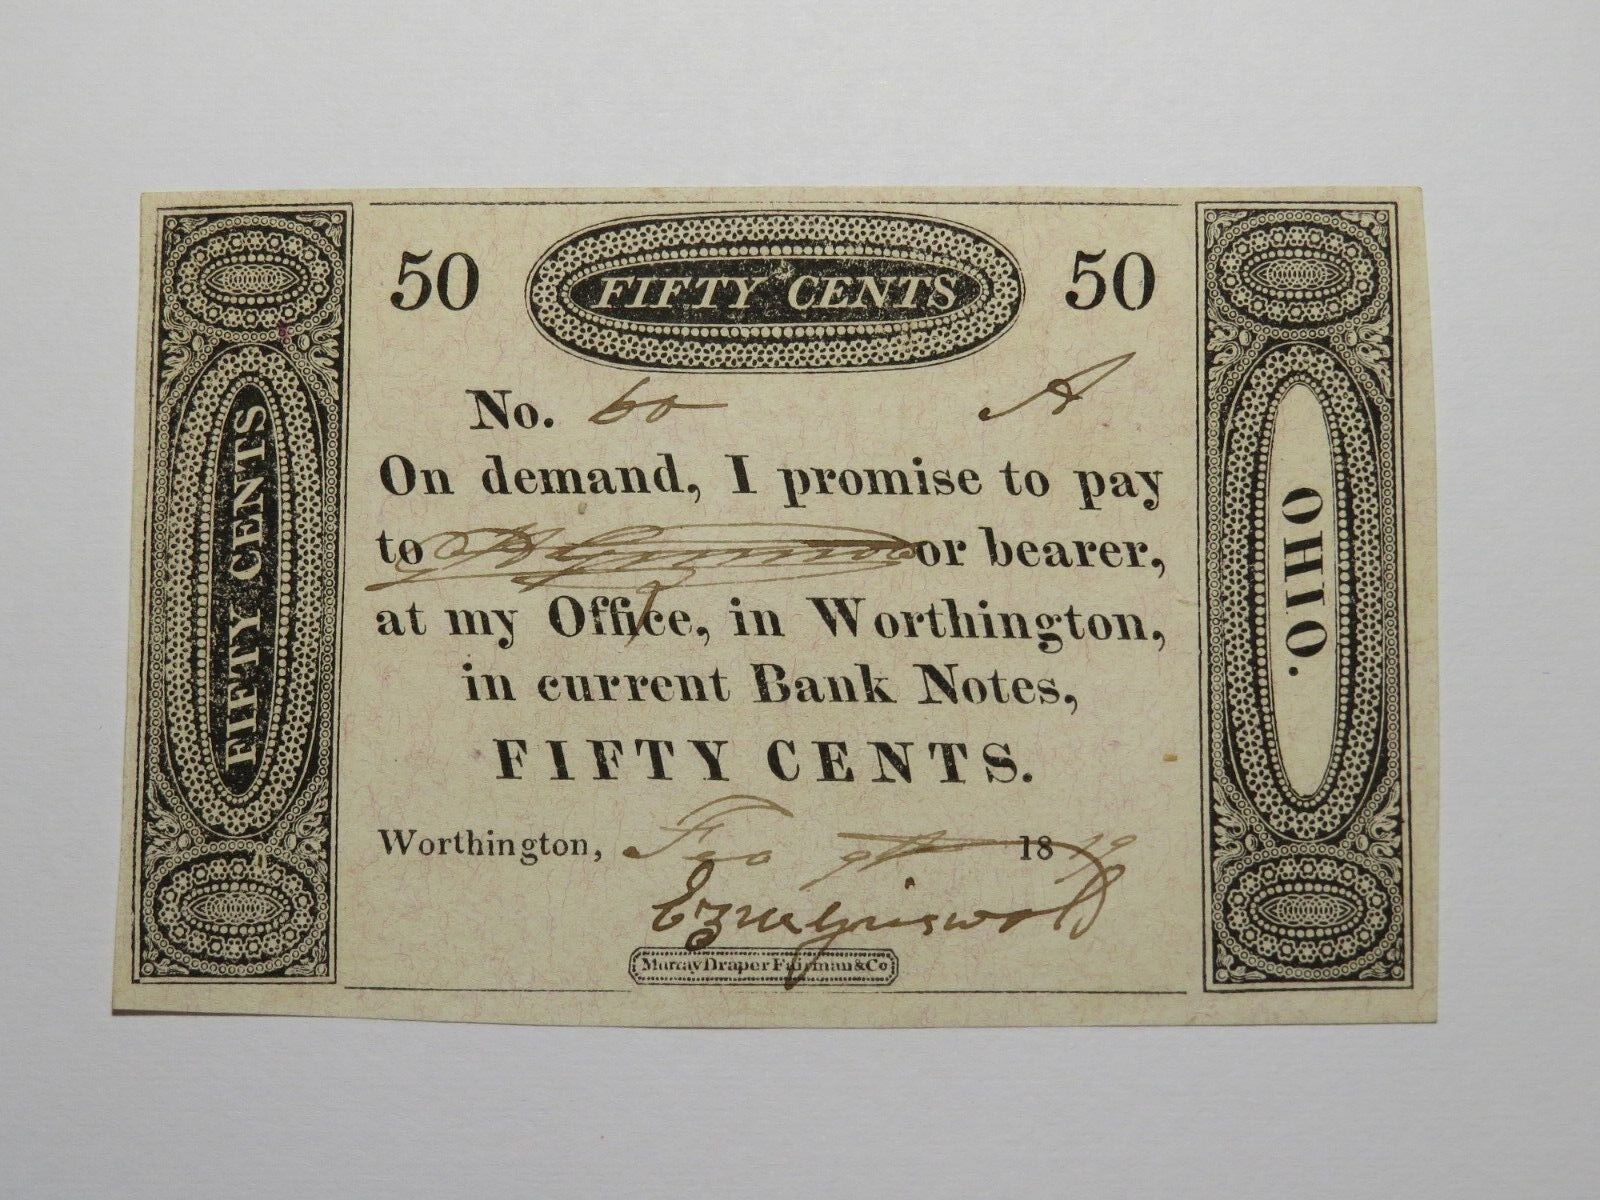 50 FIFTY CENTS 50
No. 60 A
On demand, I promise to pay
to or bearer,
at my Office, in Worthington,
in current Bank Notes,
FIFTY CENTS.
Worthington, 9th 1819
Ezra Griswold
Murray Draper Fairman & Co
FIFTY CENTS
OHIO.